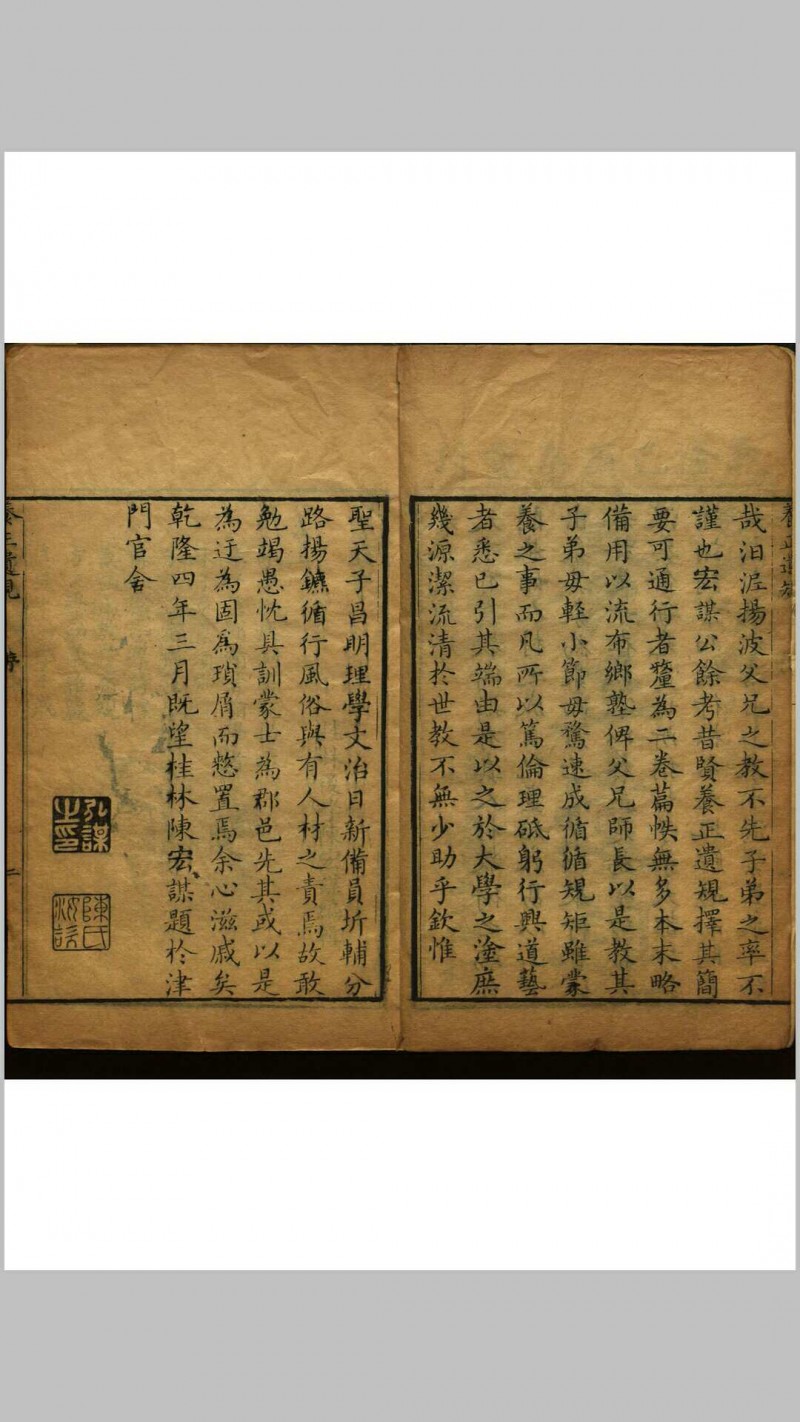 哉汨泥揚波父兄之教不先子弟之率不
謹也宏謀公餘考昔賢養正遺規擇其簡
要可通行者釐為二卷篇帙無多本末略
備用以流布鄉塾俾父兄師長以是教其
子弟毋輕小節毋騖速成循循規矩雖蒙
養之事而凡所以篤倫理砥躬行興道藝
者悉已引其端由是以之於大學之塗庶
幾源潔流清於世教不無少助乎欽惟
聖天子昌明理學文治日新備員圻輔分
路揚鑣循行風俗與有人材之責焉故敢
勉竭愚忱具訓蒙士為郡邑先其或以是
為迂為固為瑣屑而憖置焉余心滋戚矣
乾隆四年三月既望桂林陳宏謀題於津
門官舍
弘謀之印
陳氏
養正遺規
序
二